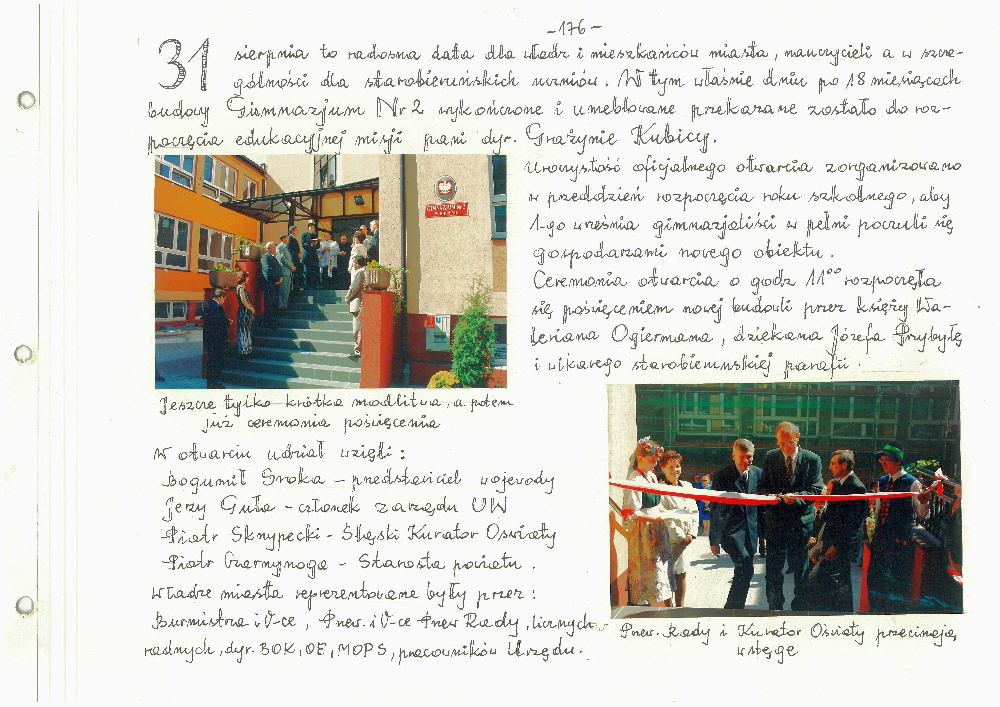 -176-
31 sierpnia to radosna data dla władz i mieszkańców miasta, nauczycieli a w szcze-
gólności dla starobieruńskich uczniów. W tym właśnie dniu po 18 miesiącach
budowy Gimnazjum Nr 2 wykończone i umeblowane przekazane zostało do roz-
poczęcia edukacyjnej misji pani dyr. Grażynie Kubicy.
Uroczystość oficjalnego otwarcia zorganizowano
w przeddzień rozpoczęcia roku szkolnego, aby
1-go września gimnazjaliści w pełni poczuli się
gospodarzami nowego obiektu.
Ceremonia otwarcia o godz 11⁰⁰ rozpoczęła
się poświęceniem nowej budowli przez księży Wa-
leriana Ogiermana, dziekana Józefa Przybyłę
i wikarego starobieruńskiej parafii.
GIMNAZJUM Nr 2
Jeszcze tylko krótka modlitwa, a potem
już ceremonia poświęcenia
W otwarciu udział wzięli:
Bogumił Sroka - przedstawiciel wojewody
Jerzy Guła - członek zarządu UW
Piotr Skrzypecki - Śląski Kurator Oświaty
Piotr Czarnynoga - Starosta powiatu.
Władze miasta reprezentowane były przez:
Burmistrza i V-ce, Przew. i V-ce Przew Rady, licznych
radnych, dyr. BOK, OE, MOPS, pracowników Urzędu.
Przew. Rady i Kurator Oświaty przecinają
wstęgę